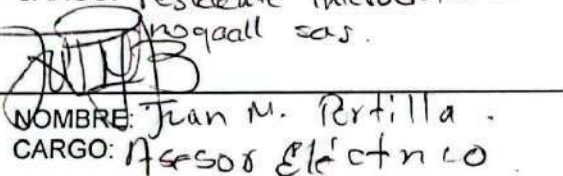 Inogaall sas.
NOMBRE: Juan M. Portilla.
CARGO: Asesor Eléctrico